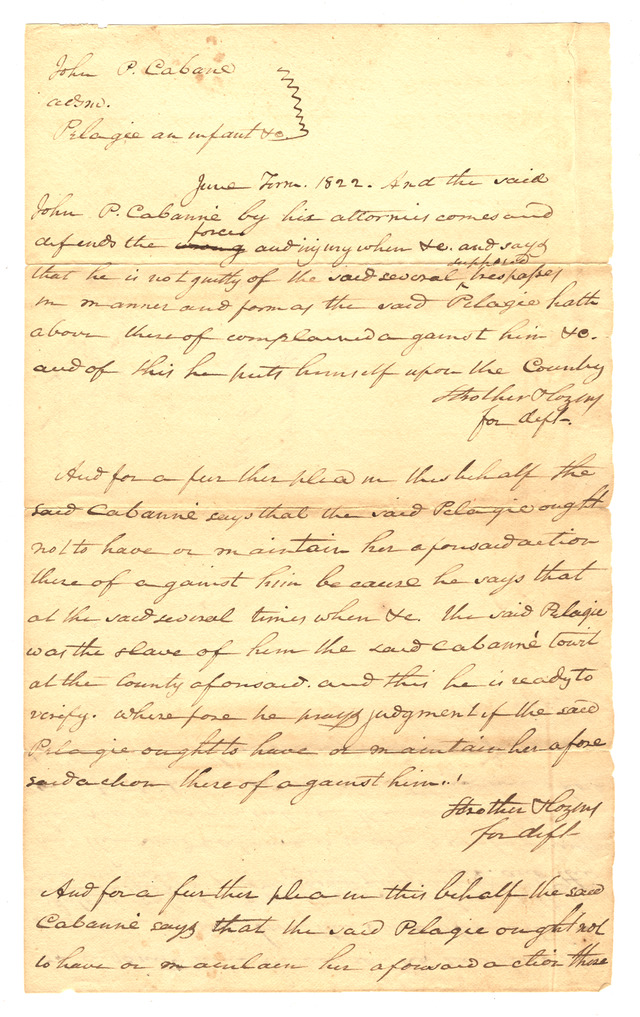 John P. Cabané
adsm.
Pelagie an infant &c.
June Term. 1822. And the said
John P. Cabanné by his attornies comes and
force
defends the wrong and injury when &c. and says
supposed
that he is not guilty of the said several trespasses
in manner and form as the said Pelagie hath
above thereof complained against him &c.
and of this he puts himself upon the Country
Strother & Cozens
for deft.
And for a further plea in this behalf the
said Cabanné says that the said Pelagie ought
not to have or maintain her aforesaid action
thereof against him because he says that
at the said several times when &c. the said Pelagie
was the slave of him the said Cabanné towit
at the County aforesaid. and this he is ready to
verify. wherefore he prays judgment if the said
Pelagie ought to have or maintain her afore
said action thereof against him.
Strother & Cozens
for deft
And for a further plea in this behalf the said
Cabanné says that the said Pelagie ought not
to have or maintain her aforesaid action there